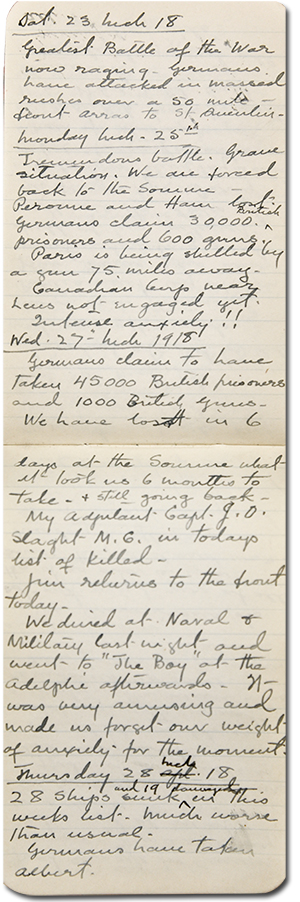 Sat 23 Mch 18
Greatest Battle of the War
now raging - Germans
have attacked in massed
rushes over a 50 mile
front arras to St Quentin -
Monday Mch - 25th
Tremendous battle. Grave
situation. We are forced
back to the Somme -
Peronne and Ham lost.
Germans claim 30,000 British
prisoners and 600 guns.
Paris is being shelled by
a gun 75 miles away -
Canadian Corps near
Lens not engaged yet.
Intense anxiety!!
Wed. 27 - Mch 1918
Germans claim to have
taken 45000 British prisoners
and 1000 British guns -
We have lost in 6
days at the Somme what
it took us 6 months to
take - & still going back -
My adjutant Capt. J.D.
Slaght M.C. in todays
list of killed -
Jim returns to the front
today -
We dined at Naval &
Military last night and
went to "The Boy" at the
Adelphi afterwards - It
was very amusing and
made us forget our weight
of anxiety for the moment -
Thursday 28 Mch 18
28 ships sunk and 19 damaged in this
weeks list - much worse
than usual -
Germans have taken
Albert.